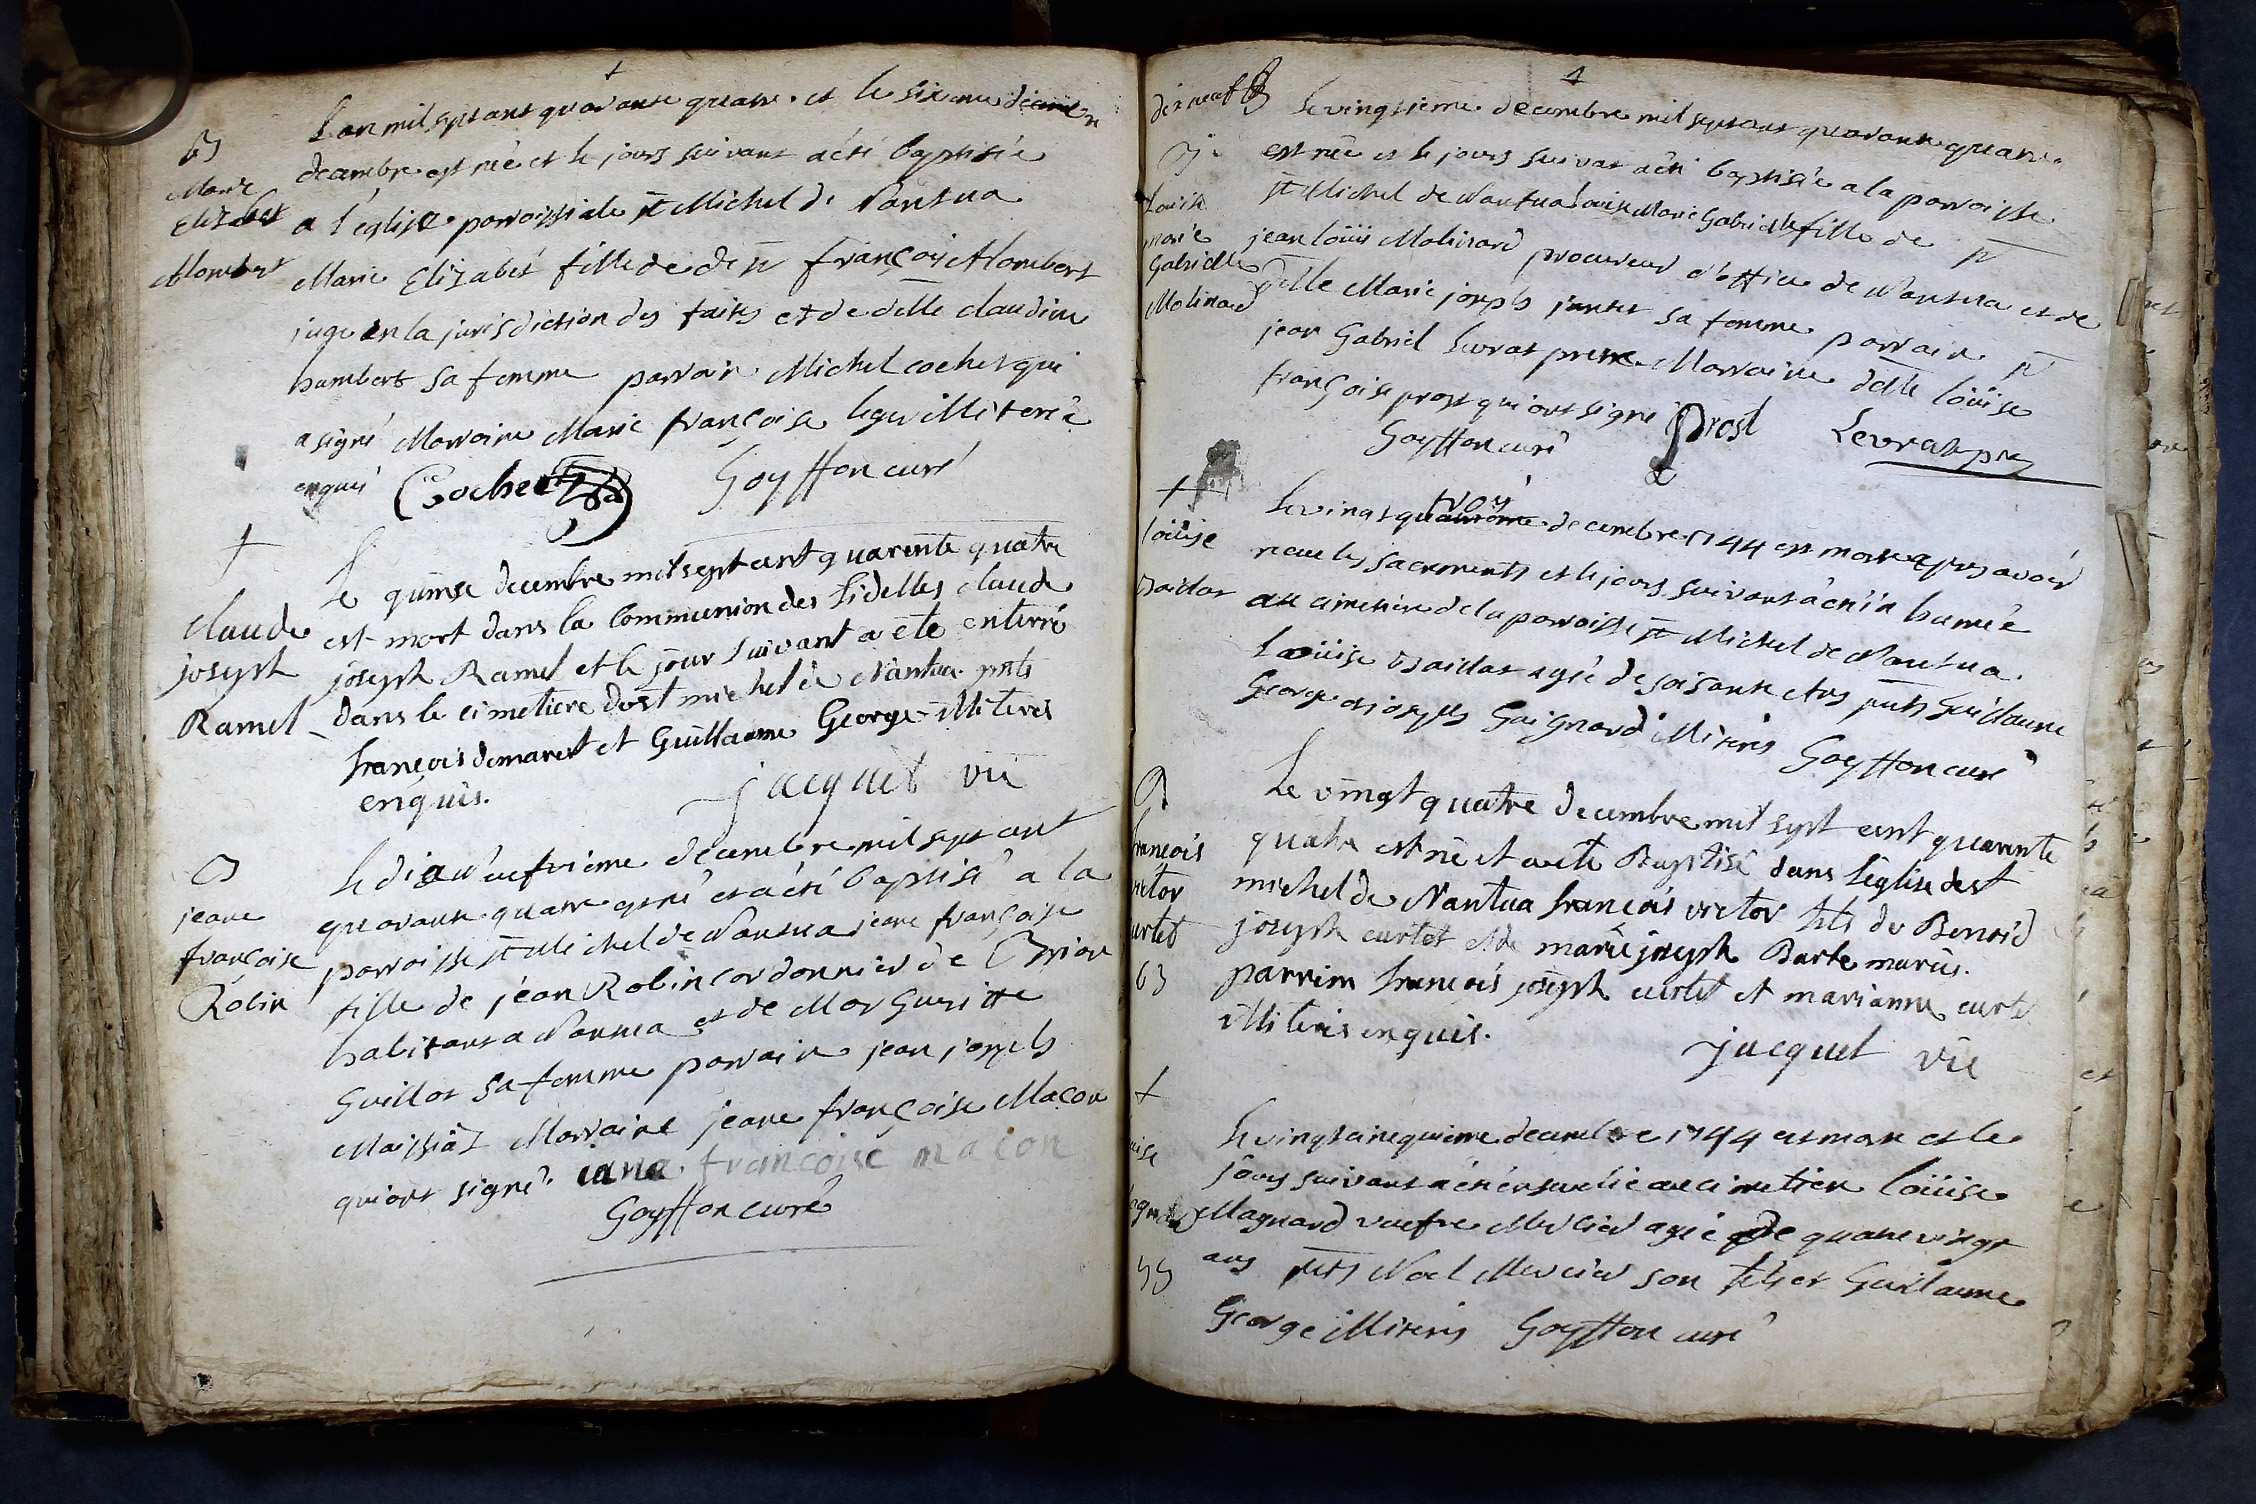 L'an mil sept cent quarante quatre et le sixieme
63
decembre est née et le jours suivant a été baptisée
Marie
Elizabet
Alombert
a l'église parroissiale st Michel de Nantua
Marie Elizabet fille de François Alombert
juge en la jurisdiction des faites et de delle claudine
humbert sa femme parrain Michel cochet qui
a signé Marraine Marie françoise illiterée
enquis Cochet Goyffon curé
+
Claude
joseph
Ramel
Le quinse decembre mil sept cent quarente quatre
est mort dans la Communion des fidelles claude
joseph Ramel et le jour suivant a ete enterré
dans le cimetiere de st michel de Nantua pnts
françois demaret et Guillaume George illiteres
enquis. jacquet vic
jeane
françoise
Robin
Le dixneufvieme decembre mil sept cent
quarante quatre est né et a été baptisé a la
parroisse st Michel de Nantua jeane françoise
fille de jean Robin cordonnier de Brion
habitant a Nantua et de Marguritte
Guillot sa femme parrain jean joseph
Maissiat Marraine jeane françoise Macon
qui ont signé. iana francoise macon
Goyffon curé
dixneuf
Le vingtième decembre mil sept cent quarante quatre
est née et le jours suivant a été baptisée a la parroisse
Louise
marie
Gabrielle
Molinard
st Michel de Nantua Louise Marie Gabrielle fille de
jean loüis Molinard procureur d'office de Nantua et de
delle Marie joseph jantet sa femme parrain
jean Gabriel Levrat pretre Marraine delle loüise
françoise prost qui ont signé Prost Levrat ptre
Goyffon curé
+
loüise
Baidar
Le vingt troy decembre 1744 est morte apres avoir
receu les sacrements et le jours suivant a été humée
au cimetiere de la parroisse st Michel de Nantua
Loüise Baidar agée de soisante ans pnts Guillaume
George et joseph Guignard illiteris Goyffon curé
françois
victor
curtet
63
Le vingt quatre decembre mil sept cent quarente
quatre est né et a ete Baptisé dans l'église de st
michel de Nantua françois victor fils de Benoid
joseph curtet et de marie joseph Barbe mariés.
parrin francois joseph curtet et marianne curtet
illiteris enquis.
jacquet vic
+
Le vingt cinquieme decembre 1744 est morte et le
jours suivant a été ensevelie au cimetiere loüise
Magnard veufve Mercier agée de quatre vingt
ans pnts Noel Mercier son fils et Guillaume
55
George illiteris Goyffon curé